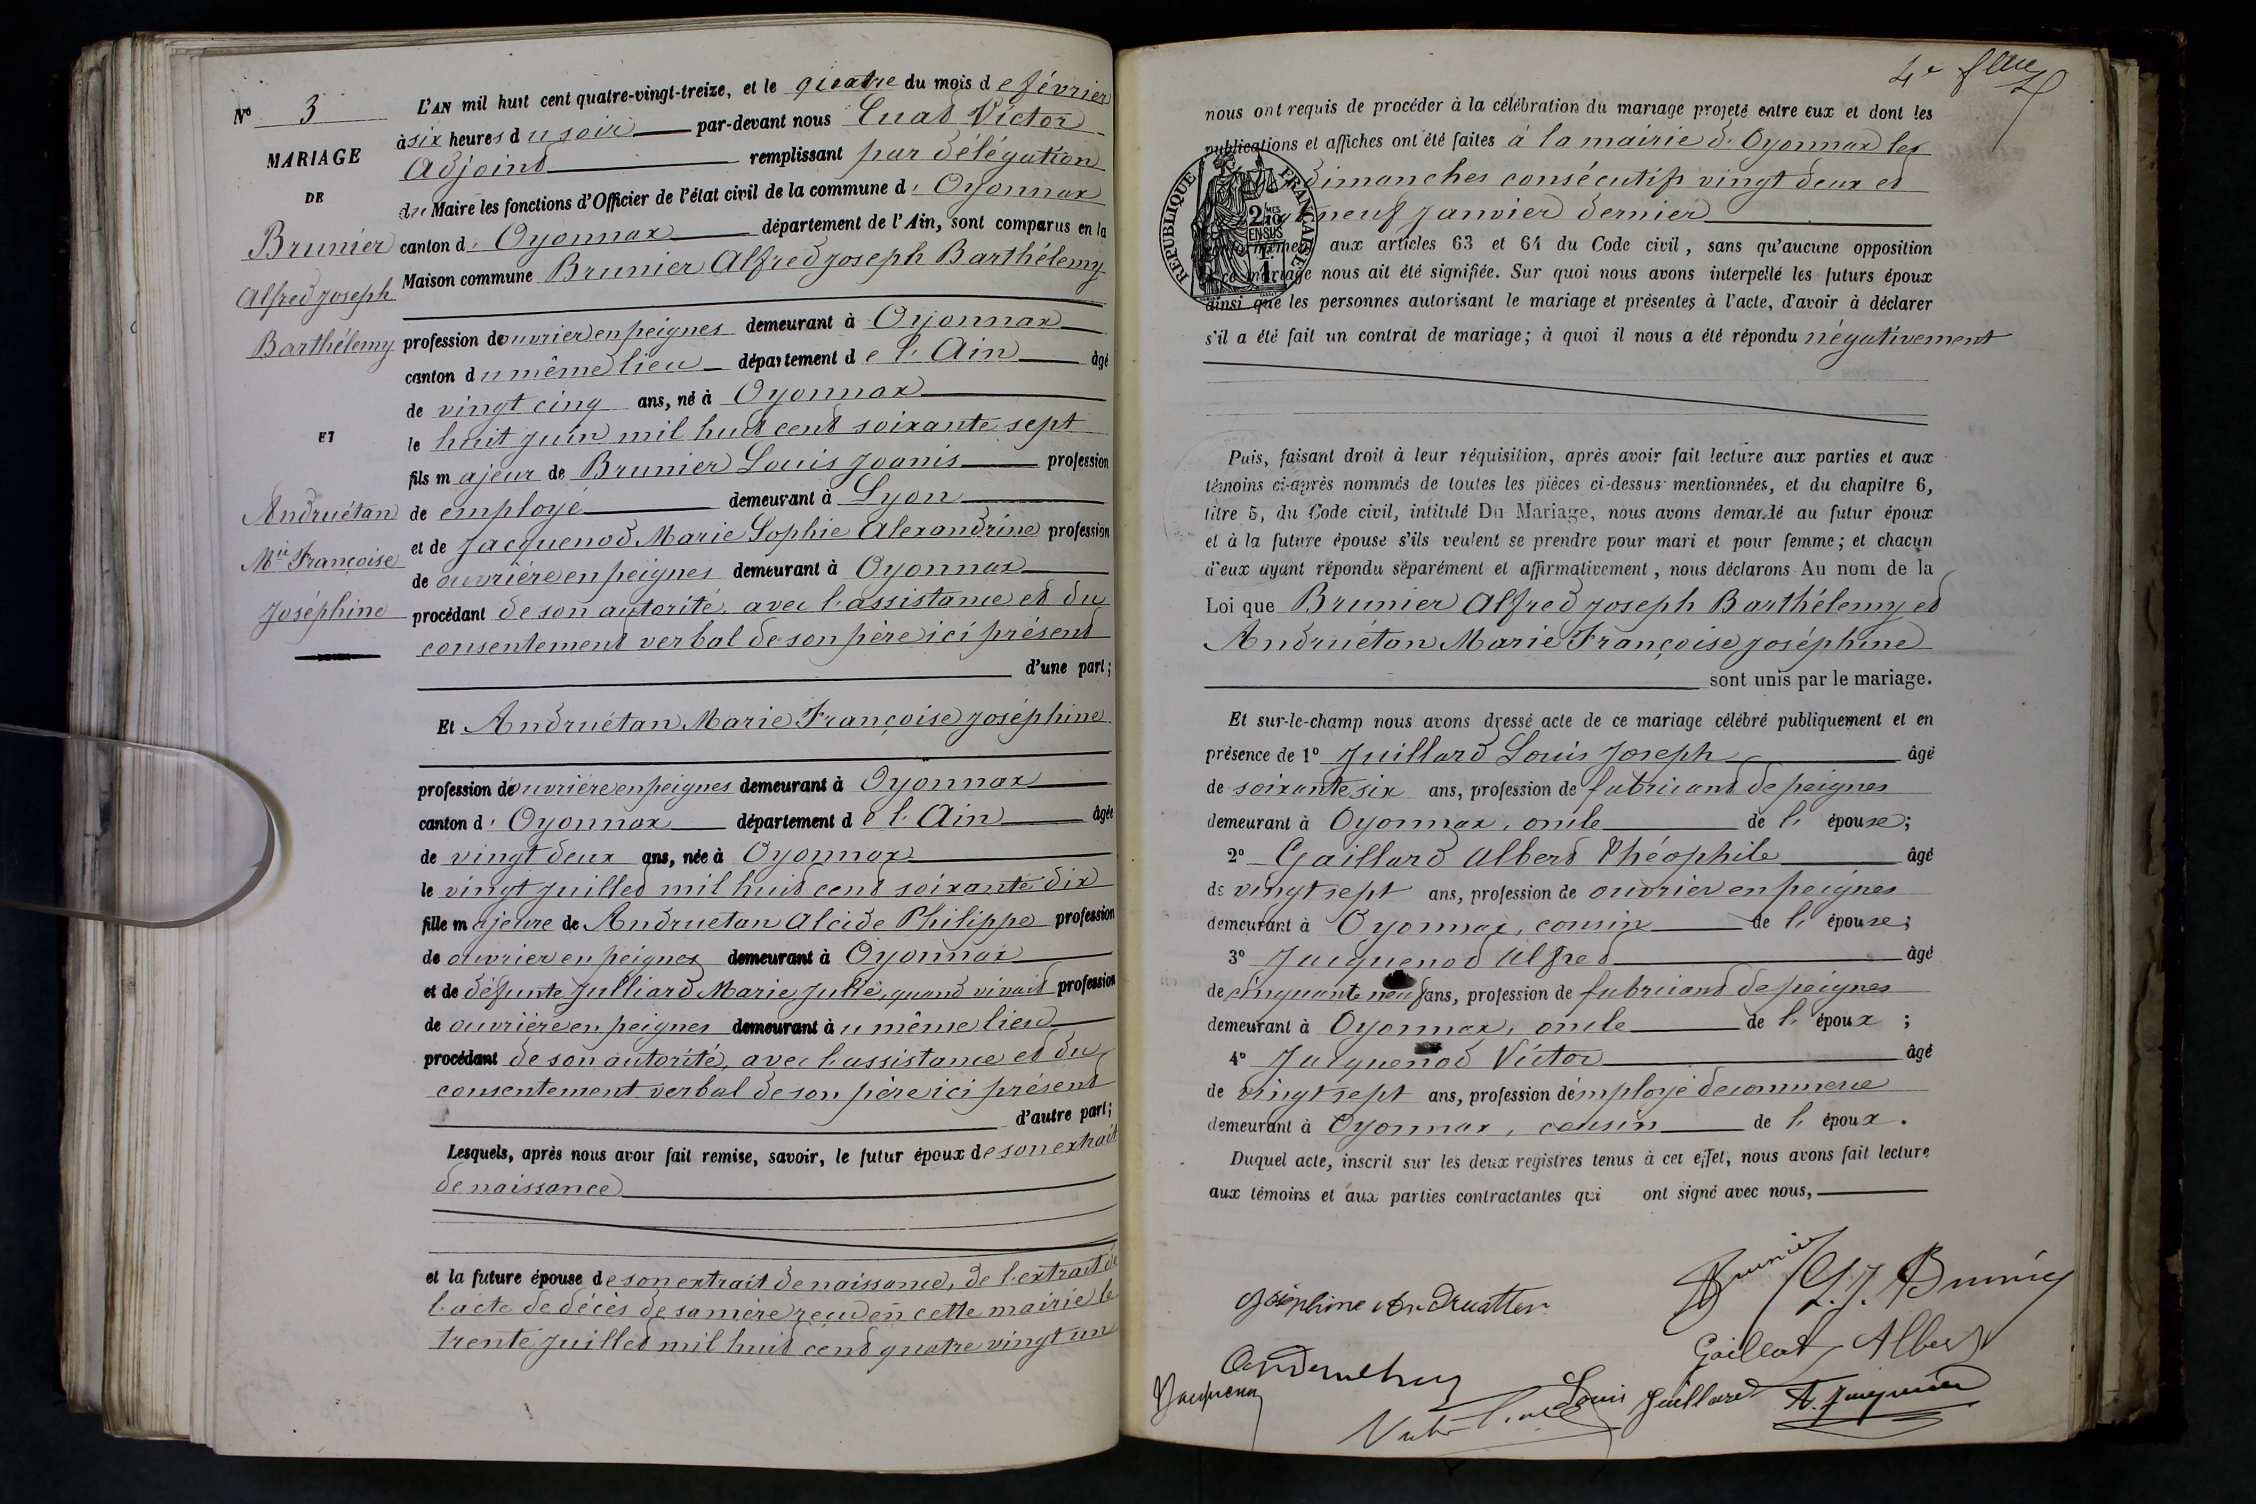 No 3
MARIAGE
DE
Brunier
Alfred Joseph
Barthélemy
ET
Andruétan
Mie Françoise
Joséphine
L'AN mil huit cent quatre-vingt-treize, et le quatre du mois de février
à six heures du soir par-devant nous Cuat Victor
Adjoint remplissant par délégation
du Maire les fonctions d'Officier de l'état civil de la commune d' Oyonnax
canton d' Oyonnax département de l'Ain, sont comparus en la
Maison commune Brunier Alfred Joseph Barthélemy
profession de ouvrier en peignes demeurant à Oyonnax
canton du même lieu département de l'Ain âgé
de vingt cinq ans, né à Oyonnax
le huit juin mil huit cent soixante sept
fils majeur de Brunier Louis Joanis profession
de employé demeurant à Lyon
et de Jacquenod Marie Sophie Alexandrine profession
de ouvrière en peignes demeurant à Oyonnax
procédant de son autorité, avec l'assistance et du
consentement verbal de son père ici présent
d'une part;
Et Andruétan Marie Françoise Joséphine
profession de ouvrière en peignes demeurant à Oyonnax
canton d' Oyonnax département de l'Ain âgée
de vingt deux ans, née à Oyonnax
le vingt juillet mil huit cent soixante dix
fille majeure de Andruétan Alcide Philippe profession
de ouvrier en peignes demeurant à Oyonnax
et de défunte Julliard Marie Julie, quand vivait profession
de ouvrière en peignes demeurant au même lieu
procédant de son autorité, avec l'assistance et du
consentement verbal de son père ici présent
d'autre part;
Lesquels, après nous avoir fait remise, savoir, le futur époux de son extrait
de naissance
et la future épouse de son extrait de naissance, de l'extrait de
l'acte de décès de sa mère reçu en cette mairie le
trente juillet mil huit cent quatre vingt un
4e
nous ont requis de procéder à la célébration du mariage projeté entre eux et dont les
publications et affiches ont été faites à la mairie d'Oyonnax les
dimanches consécutifs vingt deux et
neuf janvier dernier
aux articles 63 et 64 du Code civil, sans qu'aucune opposition
ce mariage nous ait été signifiée. Sur quoi nous avons interpellé les futurs époux
ainsi que les personnes autorisant le mariage et présentes à l'acte, d'avoir à déclarer
s'il a été fait un contrat de mariage; à quoi il nous a été répondu négativement
RÉPUBLIQUE FRANÇAISE
2/10 MES
EN SUS
Puis, faisant droit à leur réquisition, après avoir fait lecture aux parties et aux
témoins ci-après nommés de toutes les pièces ci-dessus mentionnées, et du chapitre 6,
titre 5, du Code civil, intitulé Du Mariage, nous avons demandé au futur époux
et à la future épouse s'ils veulent se prendre pour mari et pour femme; et chacun
d'eux ayant répondu séparément et affirmativement, nous déclarons Au nom de la
Loi que Brunier Alfred Joseph Barthélemy et
Andruétan Marie Françoise Joséphine
sont unis par le mariage.
Et sur-le-champ nous avons dressé acte de ce mariage célébré publiquement et en
présence de 1o Juillard Louis Joseph âgé
de soixante six ans, profession de fabricant de peignes
demeurant à Oyonnax, oncle de l'épouse;
2o Gaillard Albert Théophile âgé
de vingt sept ans, profession de ouvrier en peignes
demeurant à Oyonnax, cousin de l'épouse;
3o Jacquenod Alfred âgé
de cinquante neuf ans, profession de fabricant de peignes
demeurant à Oyonnax, oncle de l'époux;
4o Jacquenod Victor âgé
de vingt sept ans, profession d'employé de commerce
demeurant à Oyonnax, cousin de l'époux.
Duquel acte, inscrit sur les deux registres tenus à cet effet, nous avons fait lecture
aux témoins et aux parties contractantes qui ont signé avec nous,
Brunier
L. J. Brunier
Joséphine
Albert
Louis Juillard